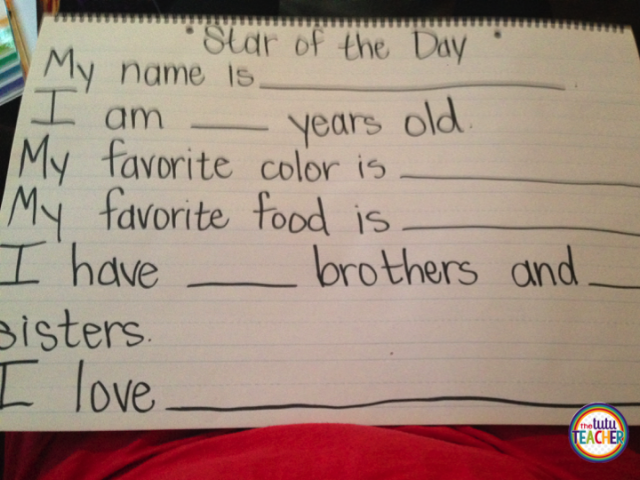 • Star of the Day •
My name is ____________________.
I am ____ years old.
My favorite color is ____________
My favorite food is ____________
I have _____ brothers and ___
sisters.
I love ____________________
the tutu
TEACHER